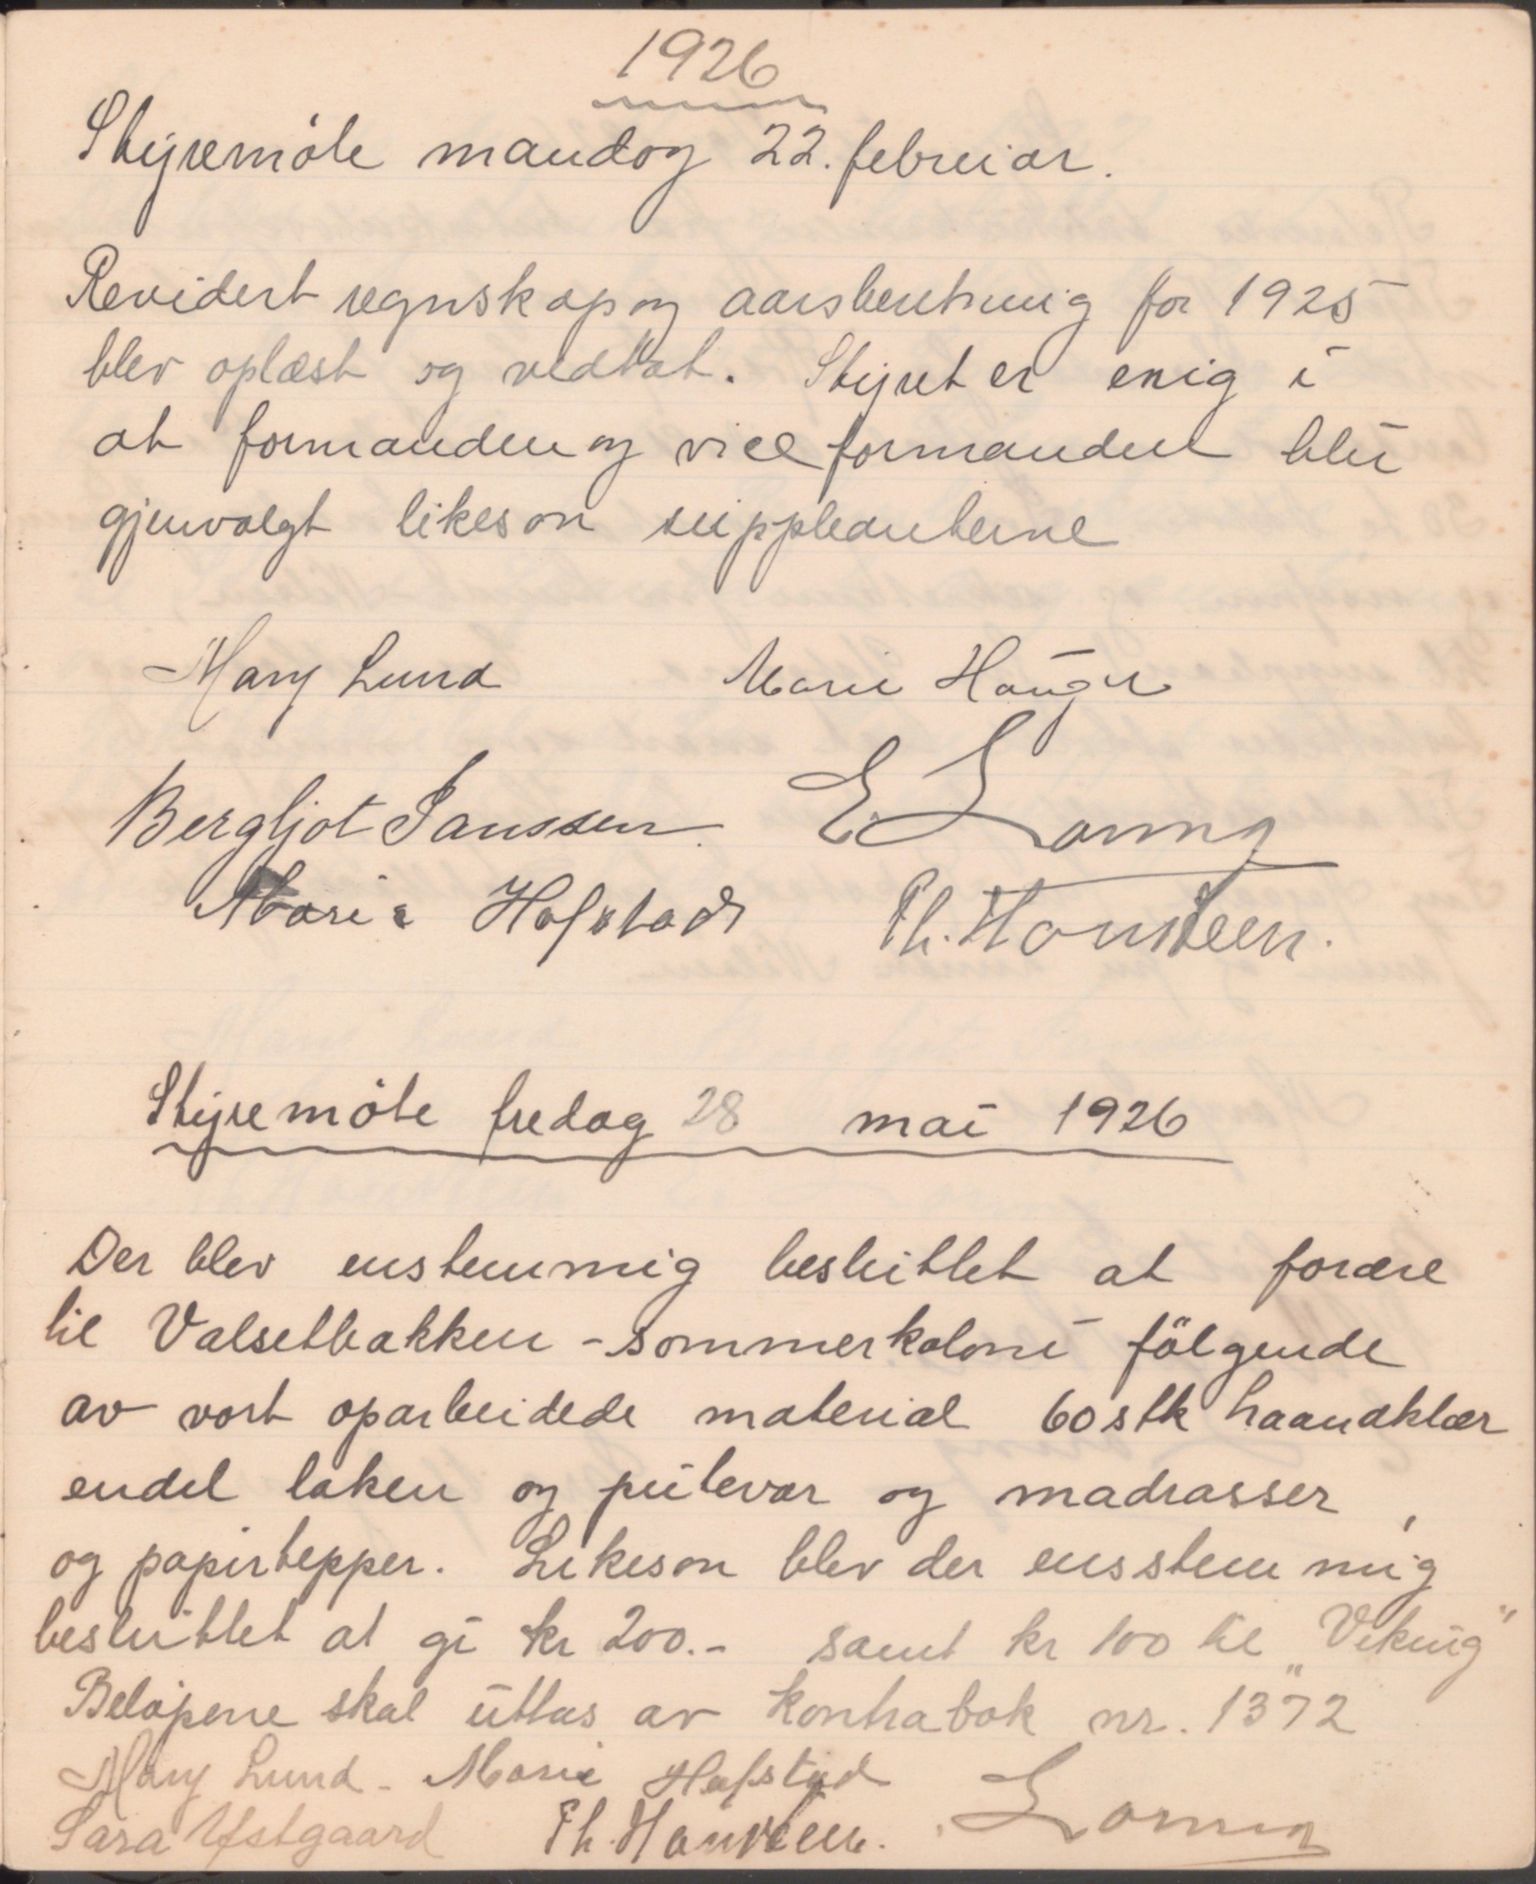 1926
Styremøte mandag 22. februar.
Revidert regnskap og aarsberetning for 1925
blev oplæst og vedtat. Styret er enig i
at formanden og viceformanden blir
gjenvalgt likeson suppleanterne
Mary Lund Marie Hauger
Bergljot Janssen. E Lorng
Marie Hofstad Th. Hansteen.
Styremøte fredag 28 mai 1926
Der blev enstemmig besluttet at forære
til Valsetbakken - sommerkoloni følgende
av vort oparbeidede material 60 stk haandklær
endel laken og putevar og madrasser,
og papirtepper. Likeson blev der ensstemmig
besluttet at gi kr 200.- samt kr 100 til "Viking"
Beløpene skal uttas av kontrabok nr. 1372
Mary Lund - Marie Hofstad
Sara Ystgaard Th. Hansteen.